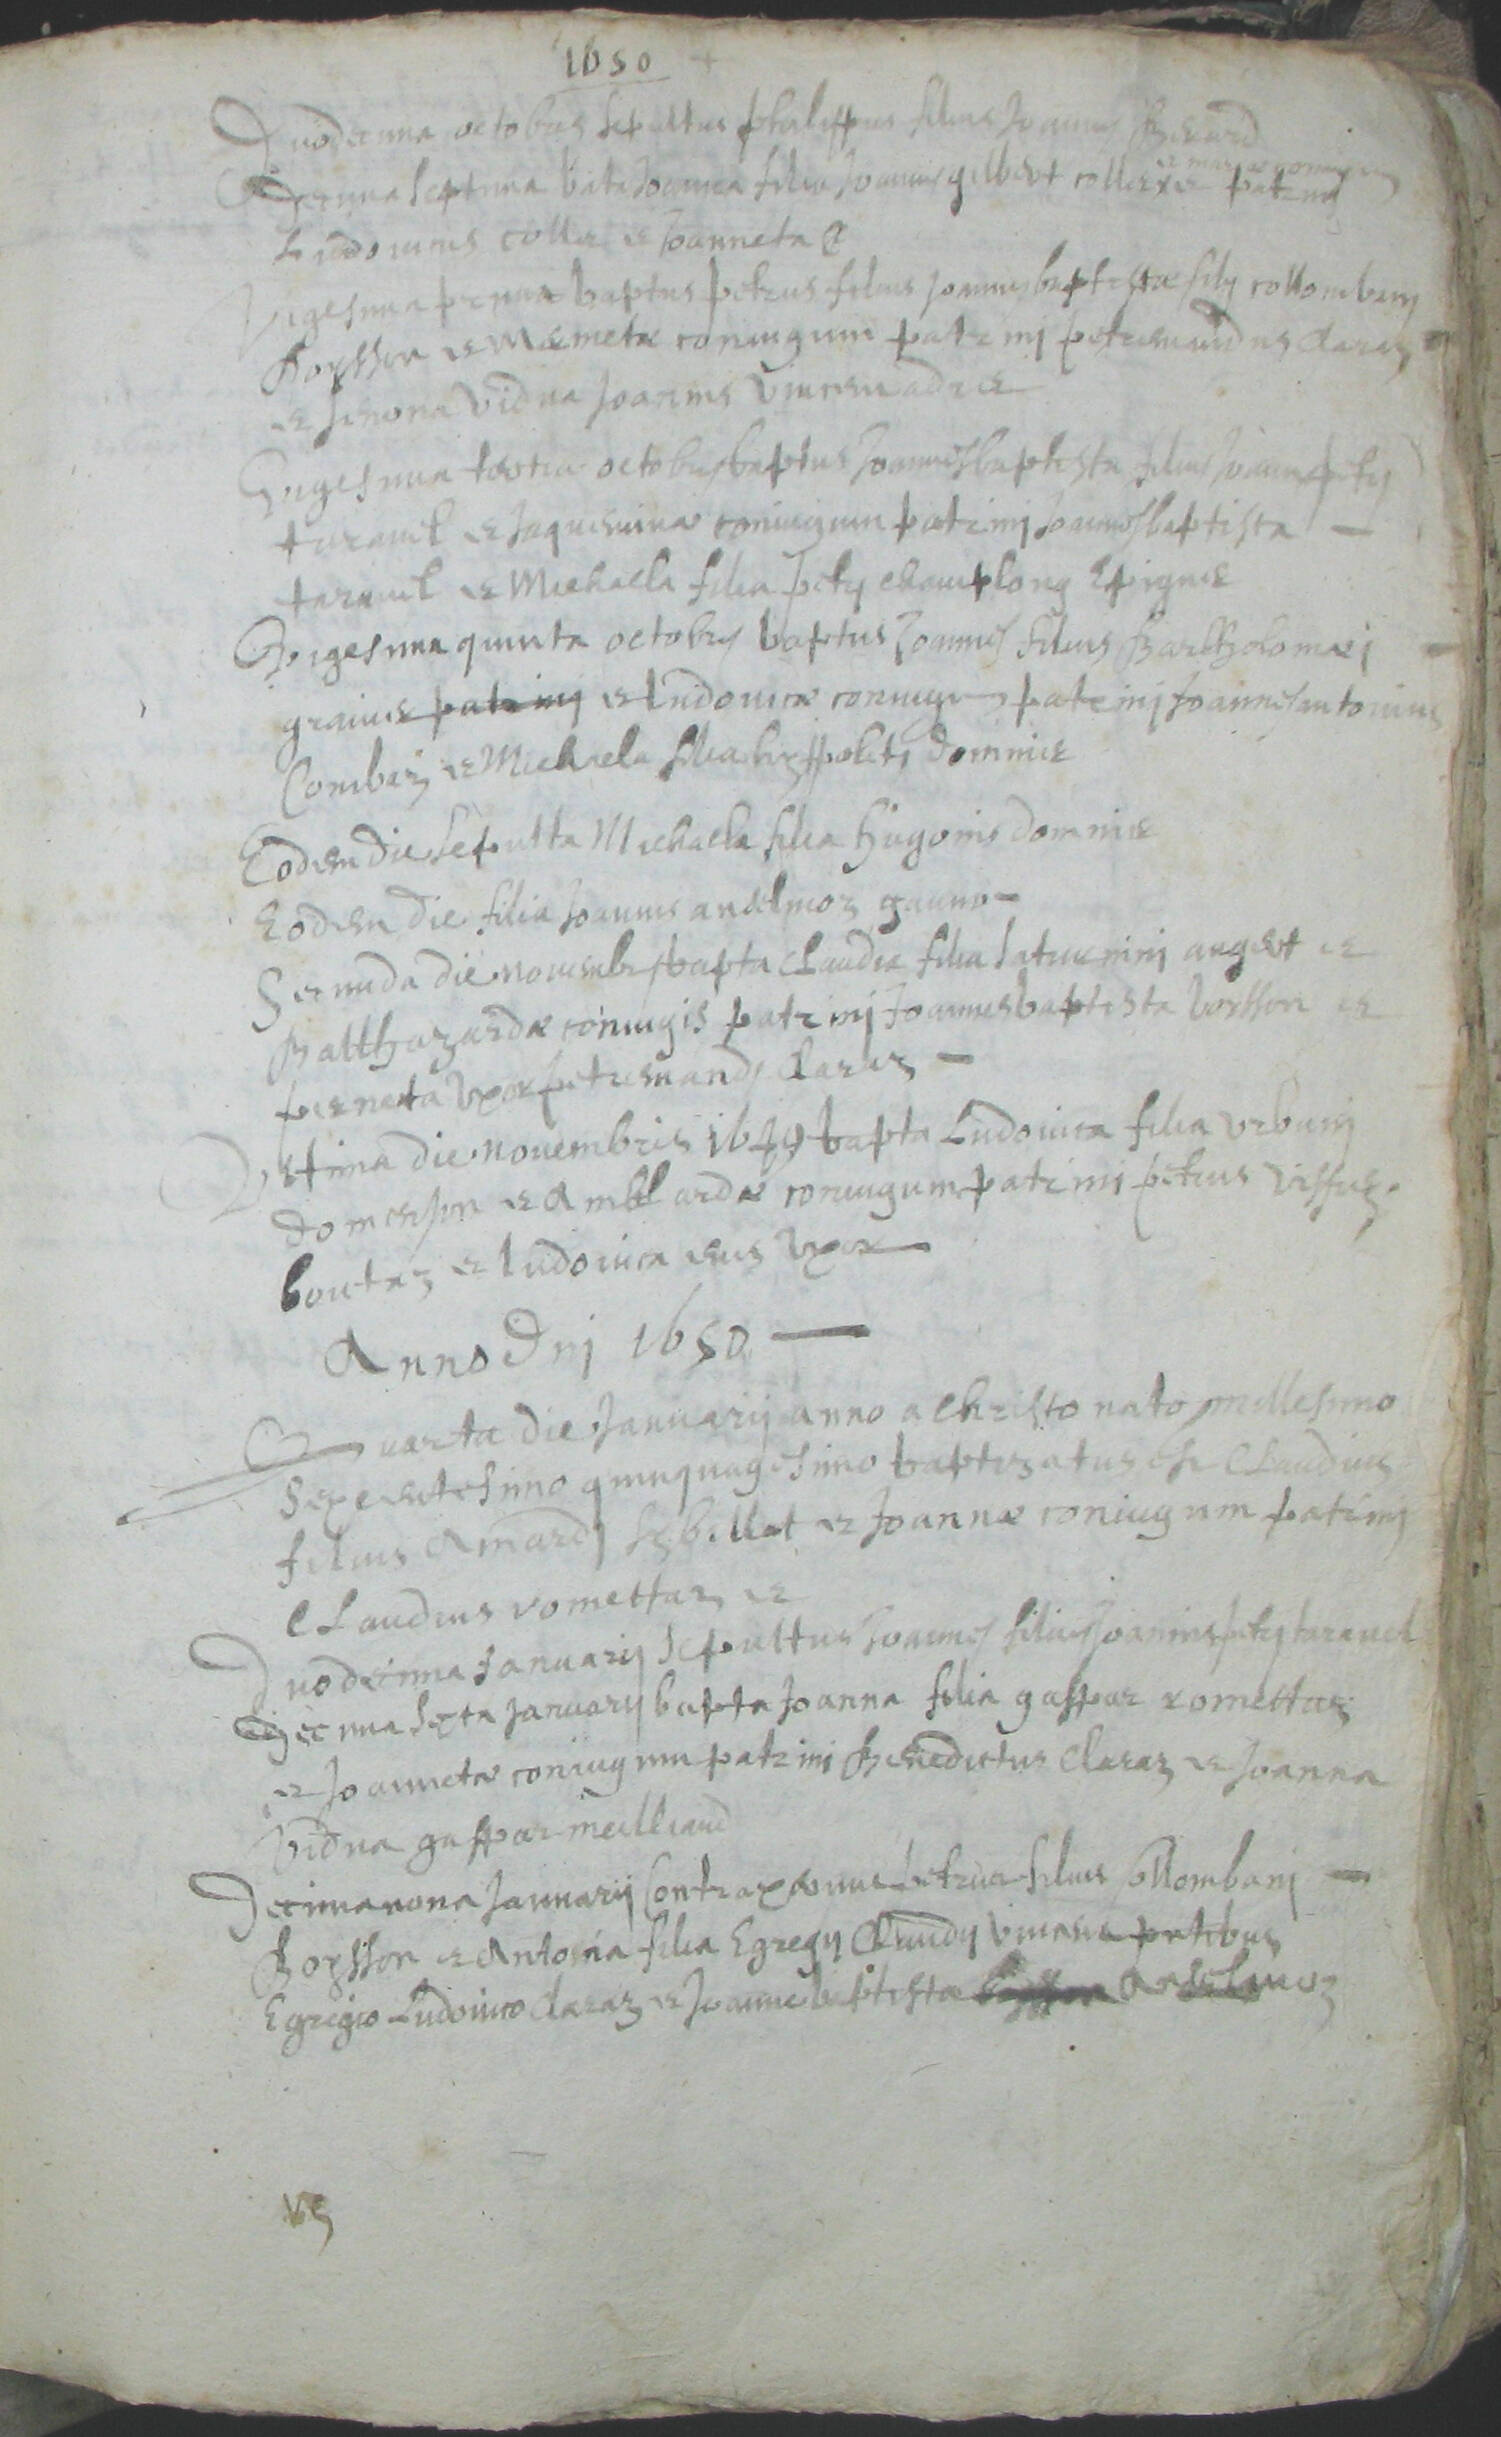 1650
Duodecima octobris sepultus philippus filius Joannis Berard
Decima septima bata Joanna filia Joannis gilbert collexie patrinj
et mariae coniugum
Ludovicus collie et Joanneta
Vigesima prima baptus petrus filius Joannisbaptistae filij collombanj
Borsson et Mametae coniugum patrinj petremandus claraz
et Simona vidua Joannis Vincen
Vigesima tertia octobris baptus Joannesbaptista filius Joannispetrj
taravel et Jaqueminae coniugum patrinj Joannesbaptista
taravel et Michaela filia petrj champlong
Vigesima quinta octobris baptus Joannes filius Bartholomaej
graine patrinj et Ludovicae coniugum patrinj Joannesantonius
Combaz et Michaela filia hyppoliti dominie
Eodem die sepulta Michaela filia hugonis dominie
Eodem die filia Joannis anselmoz
Secunda die novembris bapta Claudia filia saturninj angert et
Balthazardae coniugis patrinj Joannesbaptista borsson et
perneta uxor petremandj claraz
Vltima die novembris 1649 bapta Ludovica filia vrbanj
domenjon et Amblardae coniugum patrinj petrus
bouctaz et ludovica eius uxor
Anno Dnj 1650
Quarta die Januarij anno a christo nato millesimo
sexcentesimo quinquagesimo baptizatus est Claudius
filius Amardj sybillat et Joannae coniugum patrinj
Claudius romettaz et
Duodecima Januarij sepultus Joannes filius Joannispetrj taravel
Decima sexta Januarij bapta Joanna filia gaspar romettaz
et Joannetae coniugum patrinj Benedictus claraz et Joanna
vidua gaspar meilliand
Decimanona Januarij Contraxerunt petrus filius Collombanj
Borsson et Antonia filia Egregij Claudij
Egregio Ludovico claraz et Joannebaptista Anselmoz